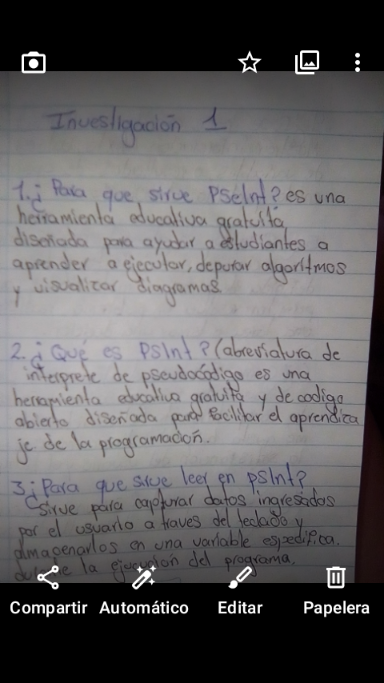 Investigación 1
1. ¿Para que sirve PSeInt? es una
herramienta educativa gratuita
diseñada para ayudar a estudiantes a
aprender a ejecutar, depurar algoritmos
y visualizar diagramas.
2. ¿Qué es PSInt? (abreviatura de
interprete de pseudocódigo es una
herramienta educativa gratuita y de codigo
abierto diseñada para facilitar el aprendiza
je de la programación.
3 ¿Para que sirve leer en psInt?
sirve para capturar datos ingresados
por el usuario a traves del teclado y
almacenarlos en una variable especifica.
durante la ejecución del programa.
Compartir Automático Editar Papelera